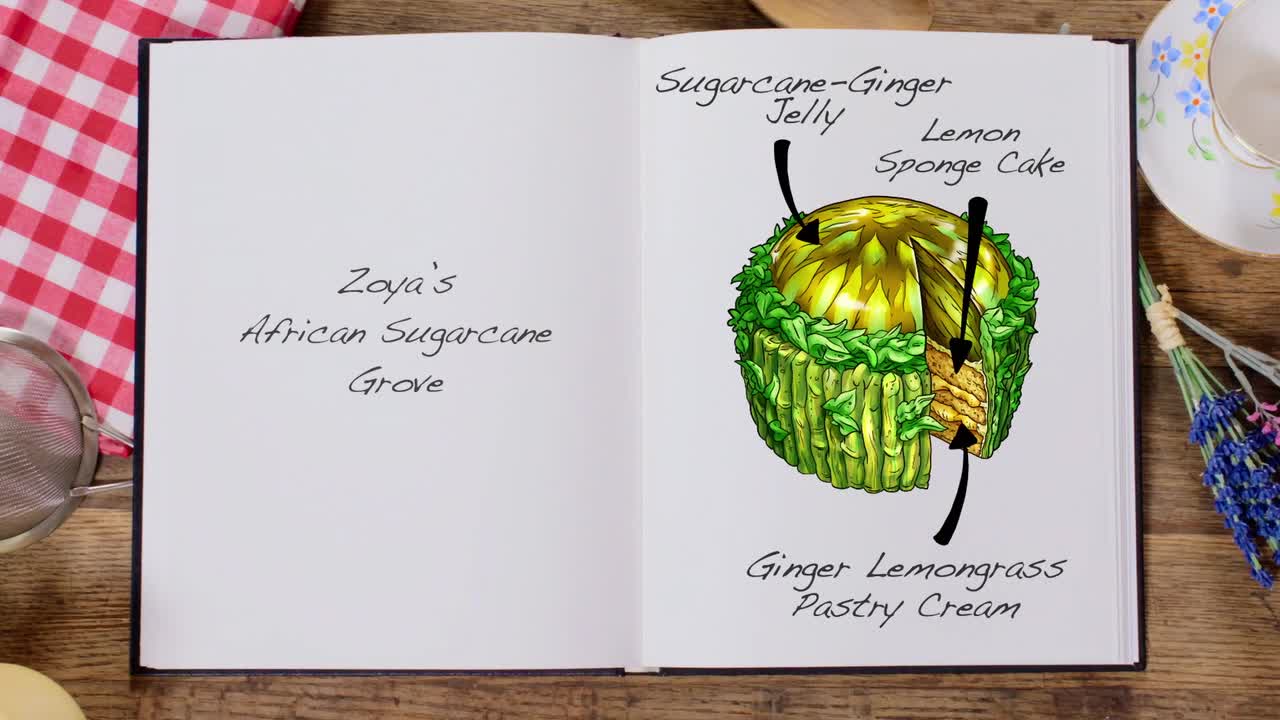 Zoya's
African Sugarcane
Grove
Sugarcane-Ginger
Jelly
Lemon
Sponge Cake
Ginger Lemongrass
Pastry Cream